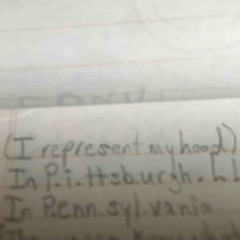 (I represent my hood)
In P.i.ttsb.urgh.
In P.enn.syl.vania